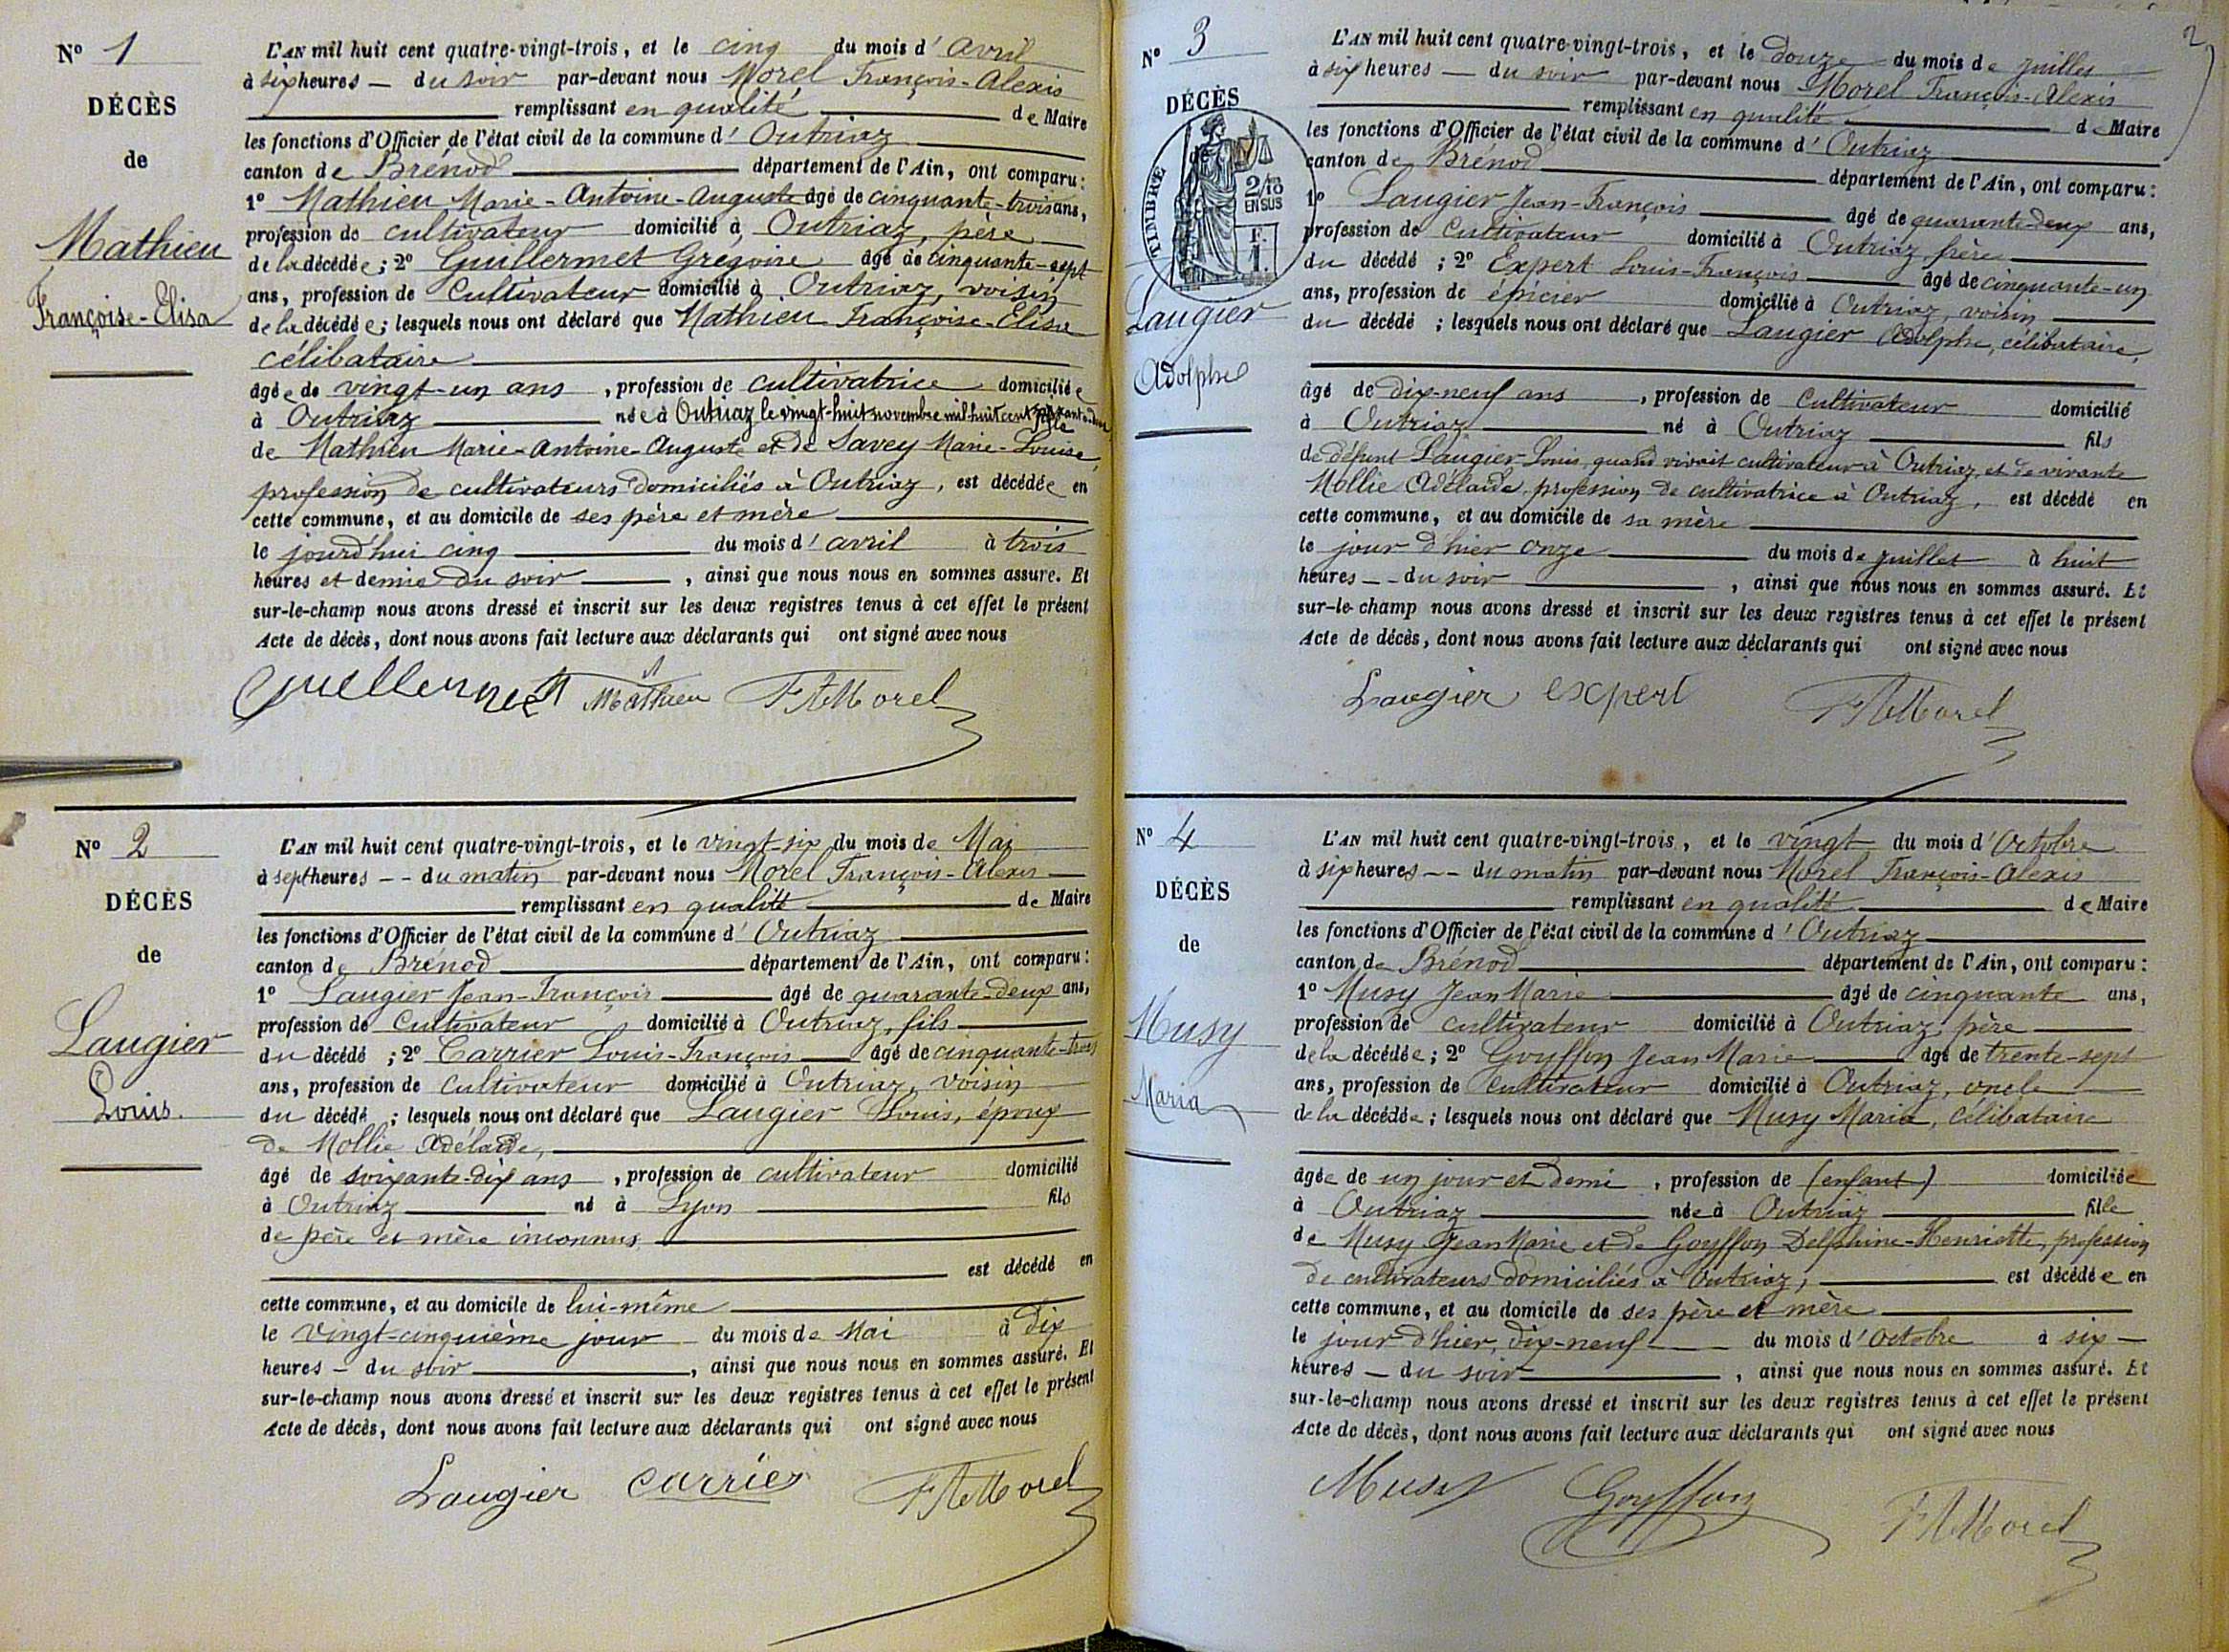 N° 1
DÉCÈS
de
Mathieu
Françoise-Elisa
L'AN mil huit cent quatre-vingt-trois, et le cinq du mois d' avril
à six heures — du soir par-devant nous Morel François-Alexis
remplissant en qualité de Maire
les fonctions d'Officier de l'état civil de la commune d' Outriaz
canton de Brénod département de l'Ain, ont comparu :
1° Mathieu Marie-Antoine-Auguste âgé de cinquante-trois ans,
profession de cultivateur domicilié à Outriaz, père
de la décédée ; 2° Guillermet Grégoire âgé de cinquante-sept
ans, profession de Cultivateur domicilié à Outriaz, voisin
de la décédée ; lesquels nous ont déclaré que Mathieu Françoise-Elisa
célibataire
âgée de vingt-un ans , profession de cultivatrice domiciliée
à Outriaz née à Outriaz le vingt-huit novembre mil huit cent soixante-un fille
de Mathieu Marie-Antoine-Auguste et de Savey Marie-Louise,
profession de cultivateurs domiciliés à Outriaz, est décédée en
cette commune, et au domicile de ses père et mère
le jourd'hui cinq du mois d' avril à trois
heures et demie du soir , ainsi que nous nous en sommes assuré. Et
sur-le-champ nous avons dressé et inscrit sur les deux registres tenus à cet effet le présent
Acte de décès, dont nous avons fait lecture aux déclarants qui ont signé avec nous
Guellermet Mathieu FAMorel
N° 2
DÉCÈS
de
Laugier
Louis.
L'AN mil huit cent quatre-vingt-trois, et le vingt-six du mois de Mai
à sept heures -- du matin par-devant nous Morel François-Alexis
remplissant en qualité de Maire
les fonctions d'Officier de l'état civil de la commune d' Outriaz
canton de Brénod département de l'Ain, ont comparu :
1° Laugier Jean-François âgé de quarante-deux ans,
profession de Cultivateur domicilié à Outriaz, fils
du décédé ; 2° Carrier Louis-François âgé de cinquante-trois
ans, profession de Cultivateur domicilié à Outriaz, voisin
du décédé ; lesquels nous ont déclaré que Laugier Louis, époux
de Mollie Adélaïde,
âgé de soixante-dix ans , profession de cultivateur domicilié
à Outriaz né à Lyon fils
de père et mère inconnus
est décédé en
cette commune, et au domicile de lui-même
le Vingt-cinquième jour du mois de Mai à dix
heures — du soir , ainsi que nous nous en sommes assuré. Et
sur-le-champ nous avons dressé et inscrit sur les deux registres tenus à cet effet le présent
Acte de décès, dont nous avons fait lecture aux déclarants qui ont signé avec nous
Laugier Carrier FAMorel
2
N° 3
DÉCÈS
TIMBRE
2/10
EN SUS
Laugier
Adolphe
L'AN mil huit cent quatre-vingt-trois, et le douze du mois de juillet
à six heures — du soir par-devant nous Morel François-Alexis
remplissant en qualité de Maire
les fonctions d'Officier de l'état civil de la commune d' Outriaz
canton de Brénod département de l'Ain, ont comparu :
1° Laugier Jean-François âgé de quarante-deux ans,
profession de Cultivateur domicilié à Outriaz, frère
du décédé ; 2° Expert Louis-François âgé de cinquante-un
ans, profession de épicier domicilié à Outriaz, voisin
du décédé ; lesquels nous ont déclaré que Laugier Adolphe, célibataire,
âgé de dix-neuf ans , profession de Cultivateur domicilié
à Outriaz né à Outriaz fils
de défunt Laugier Louis, quand vivait cultivateur à Outriaz, et de vivante
Mollie Adélaïde, profession de cultivatrice à Outriaz, est décédé en
cette commune, et au domicile de sa mère
le jour d'hier onze du mois de juillet à huit
heures -- du soir , ainsi que nous nous en sommes assuré. Et
sur-le-champ nous avons dressé et inscrit sur les deux registres tenus à cet effet le présent
Acte de décès, dont nous avons fait lecture aux déclarants qui ont signé avec nous
Laugier expert FAMorel
N° 4
DÉCÈS
de
Musy
Maria
L'AN mil huit cent quatre-vingt-trois, et le vingt du mois d' Octobre
à six heures -- du matin par-devant nous Morel François-Alexis
remplissant en qualité de Maire
les fonctions d'Officier de l'état civil de la commune d' Outriaz
canton de Brénod département de l'Ain, ont comparu :
1° Musy Jean Marie âgé de cinquante ans,
profession de cultivateur domicilié à Outriaz, père
de la décédée ; 2° Goyffon Jean Marie âgé de trente-sept
ans, profession de Cultivateur domicilié à Outriaz, oncle
de la décédée ; lesquels nous ont déclaré que Musy Maria, célibataire
âgée de un jour et demi , profession de (enfant) domiciliée
à Outriaz née à Outriaz fille
de Musy Jean Marie et de Goyffon Delphine-Henriette, profession
de cultivateurs domiciliés à Outriaz, est décédée en
cette commune, et au domicile de ses père et mère
le jour d'hier, dix-neuf du mois d' Octobre à six —
heures — du soir , ainsi que nous nous en sommes assuré. Et
sur-le-champ nous avons dressé et inscrit sur les deux registres tenus à cet effet le présent
Acte de décès, dont nous avons fait lecture aux déclarants qui ont signé avec nous
Musy Goyffon FAMorel